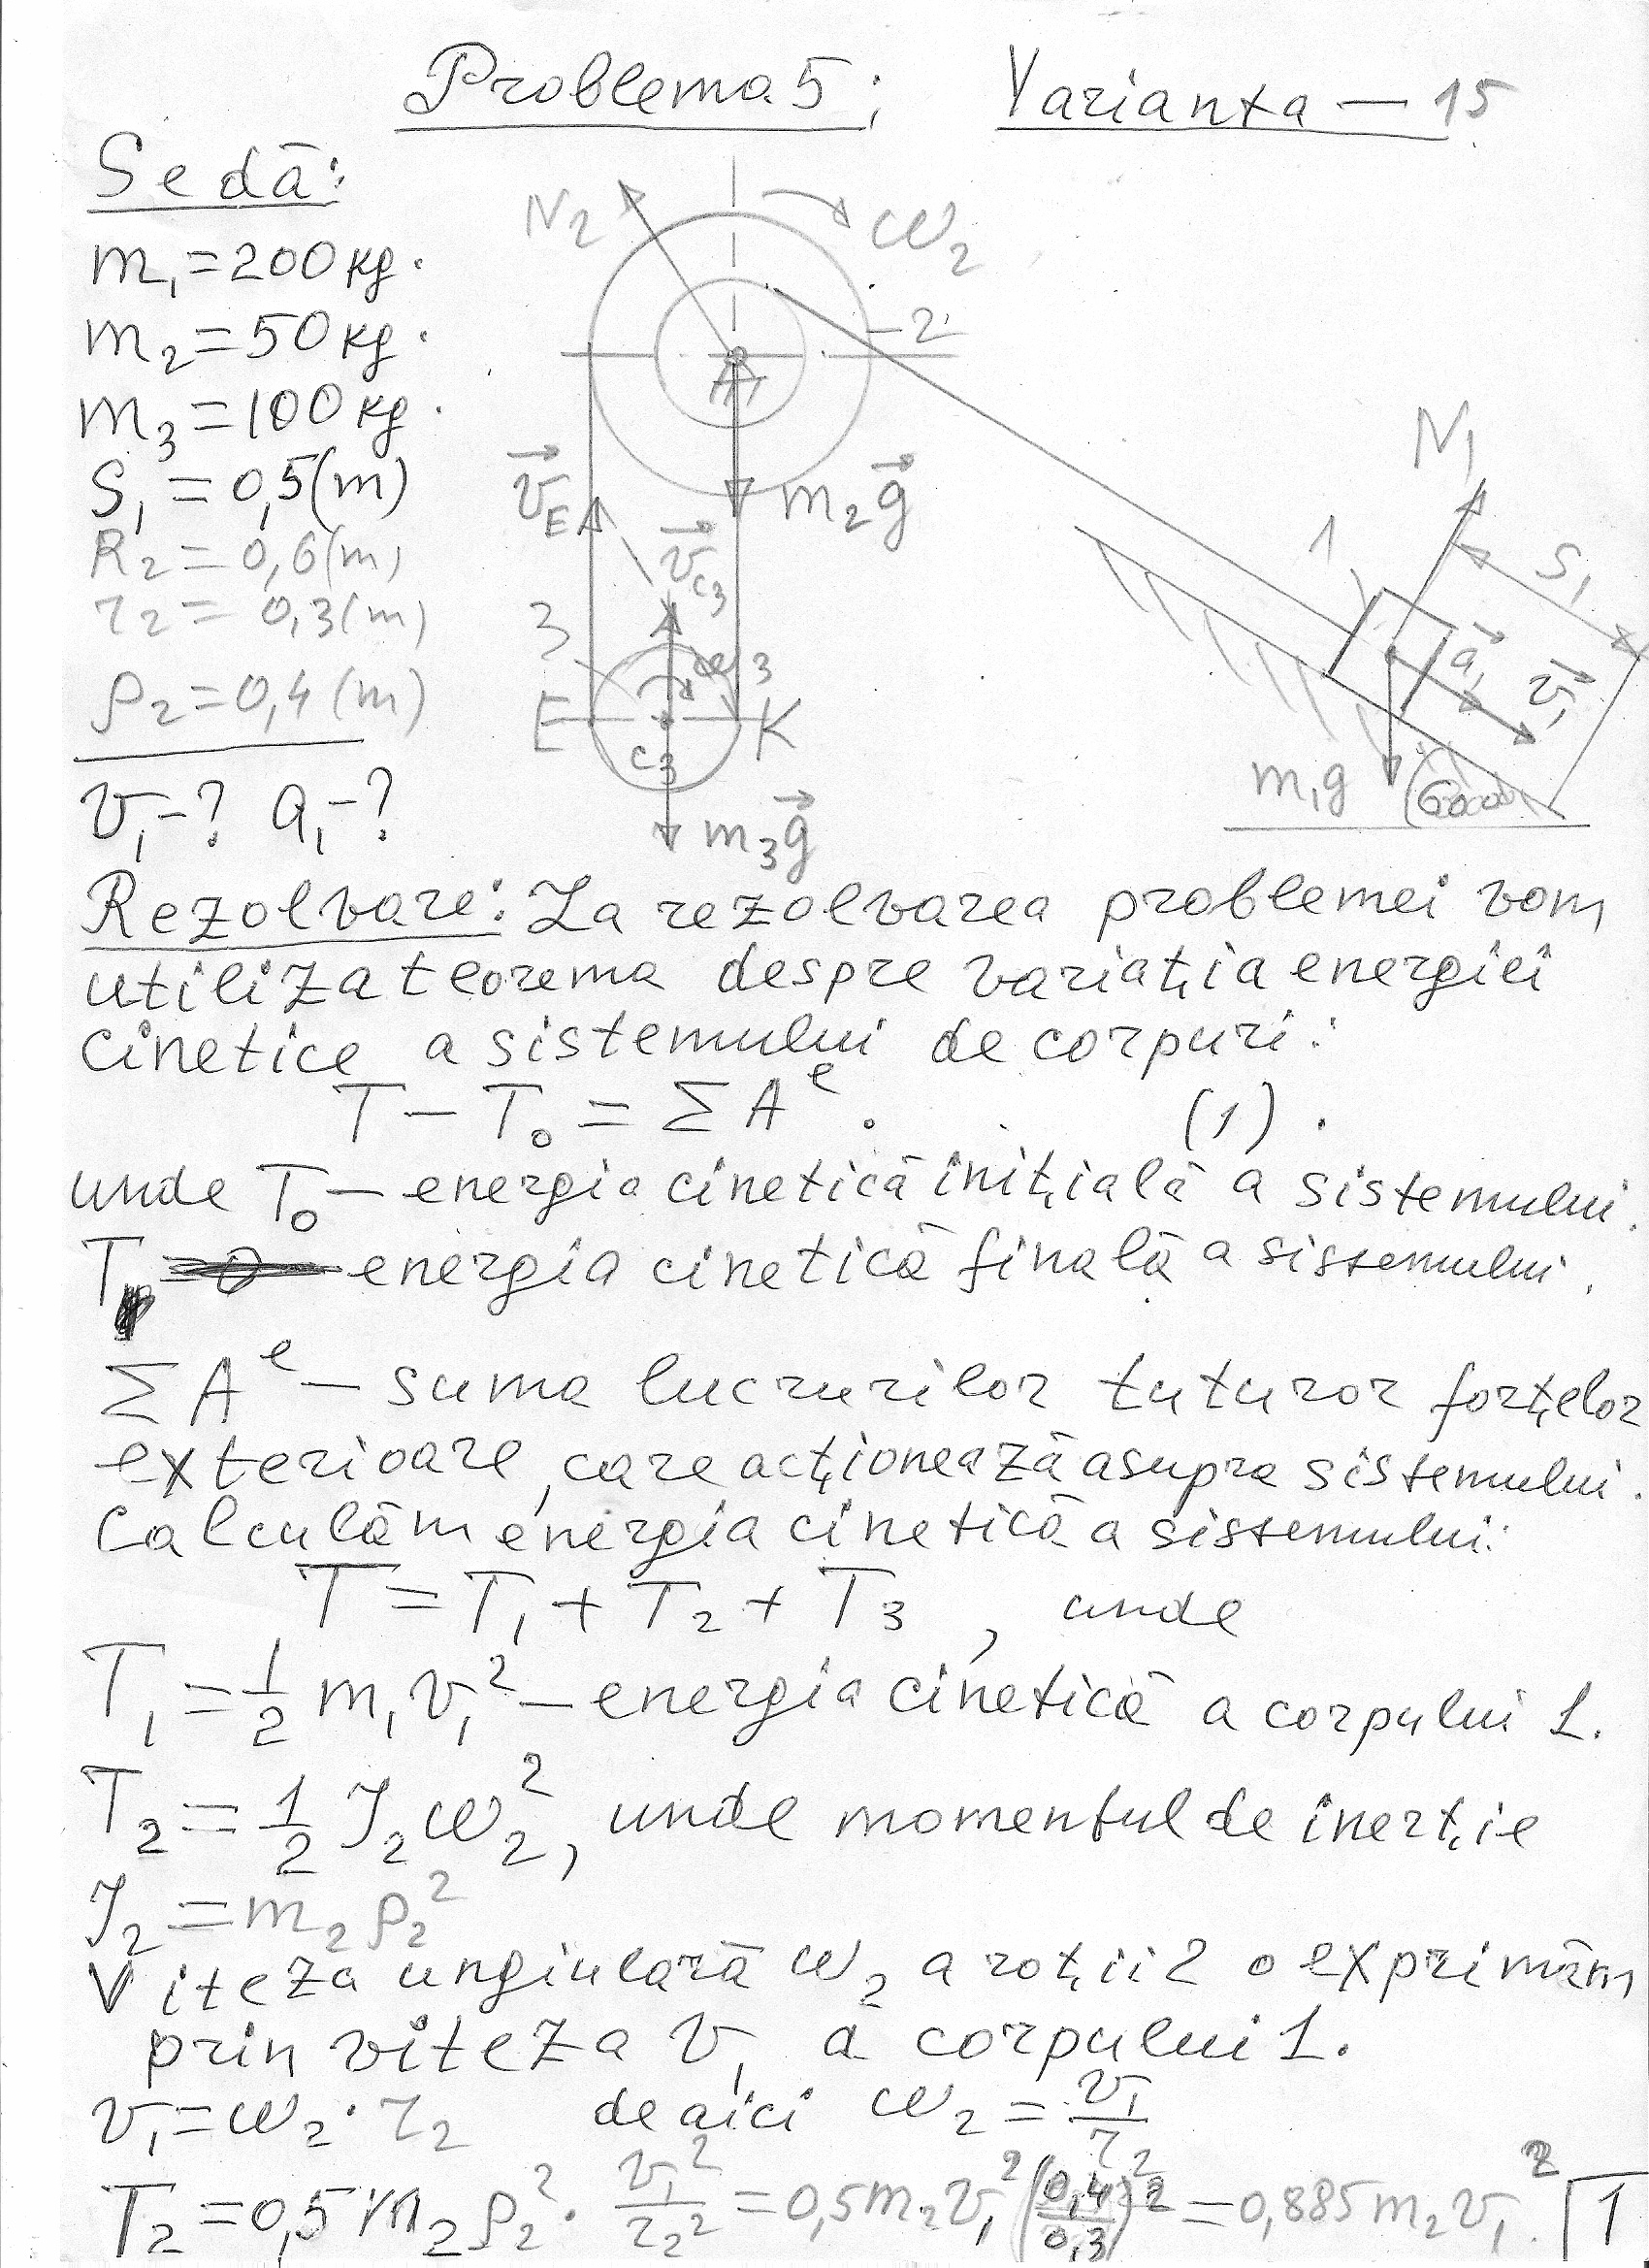 Problema 5; Varianta — 15
Se dă:
m₁ = 200 kg.
m₂ = 50 kg.
m₃ = 100 kg.
S₁ = 0,5 (m)
R₂ = 0,6 (m)
r₂ = 0,3 (m)
ρ₂ = 0,4 (m)
v₁ - ? a₁ - ?
N₂
ω₂
2
A
m₂g⃗
v⃗E
v⃗c₃
3
ω₃
E
K
c₃
m₃g⃗
N₁
1
S₁
a⃗₁
v⃗₁
m₁g
60°
Rezolvare: La rezolvarea problemei vom
utiliza teorema despre variaţia energiei
cinetice a sistemului de corpuri:
T — T₀ = ΣAᵉ. (1).
unde T₀ — energia cinetică iniţială a sistemului.
T — energia cinetică finală a sistemului.
ΣAᵉ — suma lucrurilor tuturor forţelor
exterioare, care acţionează asupra sistemului.
Calculăm energia cinetică a sistemului:
T = T₁ + T₂ + T₃, unde
T₁ = 1/2 m₁v₁² — energia cinetică a corpului 1.
T₂ = 1/2 J₂ω₂², unde momentul de inerţie
J₂ = m₂ρ₂²
Viteza ungiulară ω₂ a roţii 2 o exprimăm
prin viteza v₁ a corpului 1.
v₁ = ω₂ · r₂ de aici ω₂ = v₁/r₂
T₂ = 0,5 m₂ρ₂² · v₁²/r₂² = 0,5 m₂v₁² (0,4/0,3)² = 0,885 m₂v₁². 1